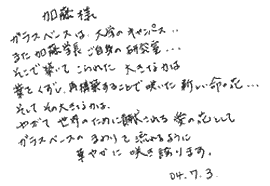 加藤様
ガラスベースは、大学のキャンパス‥
また加藤学長ご自身の研究室‥‥
そこで築いてこられた大きな力は
葉をくずし、再構築することで咲いた新しい命の花‥‥
そしてその大きな力は、
やがて世界のために献じられる愛の花として
ガラスベースのまわりを流れるように
華やかに咲き誇ります。
04.7.3.